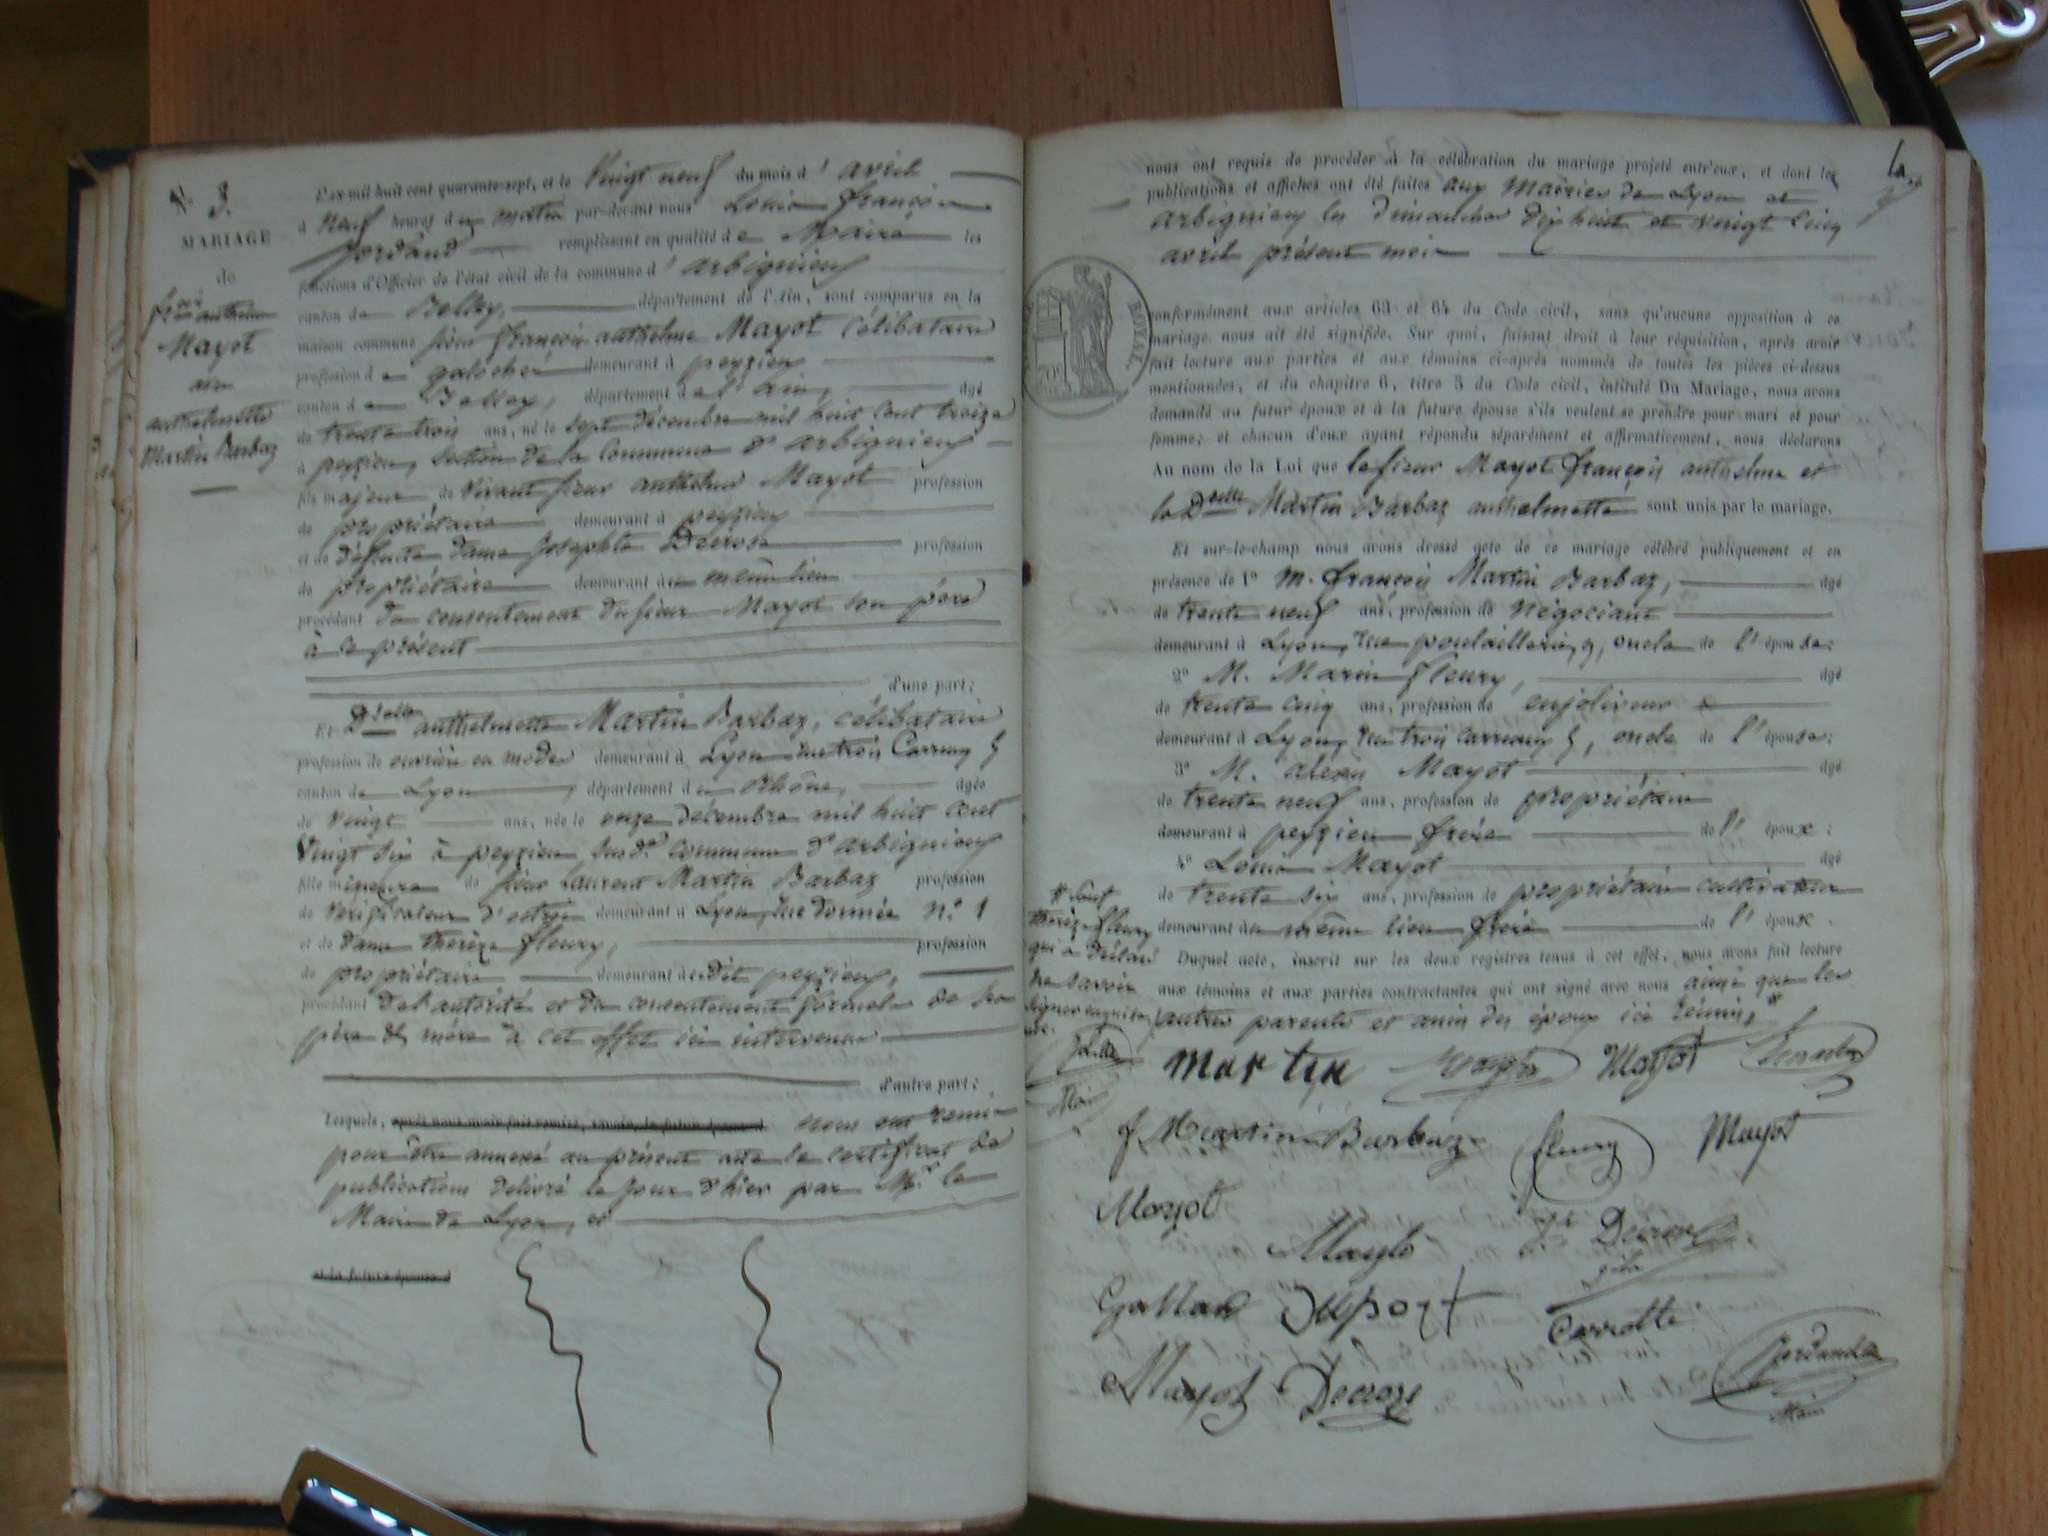 N° 3.
MARIAGE
de
anthelme
Mayot
anthelmette
Martin Barbaz
L'an mil huit cent quarante-sept, et le Vingt neuf du mois d'avril
à Neuf heures du matin par-devant nous Louis françois
Jordand remplissant en qualité de Maire les
fonctions d'Officier de l'état civil de la commune d'arbignieu
canton de Belley, département de l'Ain, sont comparus en la
maison commune sieur françois anthelme Mayot célibataire
profession de galocher demeurant à peyzieu
canton de Belley, département de l'ain, âgé
de trente trois ans, né le sept décembre mil huit cent treize
à peyzieu, section de la Commune d'arbignieu
fils majeur de vivant sieur anthelme Mayot profession
de propriétaire demeurant à peyzieu
et de défunte dame Josephte Decrose profession
de propriétaire demeurant au même lieu
procédant du consentement du sieur Mayot son père
à ce présent
d'une part;
Et Dselle anthelmette Martin Barbaz, célibataire
profession de ouvrière en modes demeurant à Lyon rue trois Carreaux 5
canton de Lyon, département du Rhône, âgée
de vingt ans, née le onze décembre mil huit cent
Vingt six à peyzieu susde commune d'arbignieu
fille mineure de sieur Laurent Martin Barbaz profession
de Vérificateur d'octroi demeurant à Lyon, rue n° 1
et de dame therèze fleury, profession
de propriétaire demeurant audit peyzieu,
procédant de l'autorité et du consentement formels de ses
père et mère à cet effet ici intervenus
d'autre part;
Lesquels, après nous avoir fait remise, savoir, le futur époux d nous ont remis
pour être annexé au présent acte le certificat de
publications délivré le jour d'hier par Mr. le
Maire de Lyon, et
et la future épouse d
nous ont requis de procéder à la célébration du mariage projeté entr'eux, et dont les
publications et affiches ont été faites aux Mairies de Lyon et
arbignieu les dimanches dix huit et vingt cinq
avril présent mois
ROYAL.
conformément aux articles 63 et 64 du Code civil, sans qu'aucune opposition à ce
mariage nous ait été signifiée. Sur quoi, faisant droit à leur réquisition, après avoir
fait lecture aux parties et aux témoins ci-après nommés de toutes les pièces ci-dessus
mentionnées, et du chapitre 6, titre 5 du Code civil, intitulé Du Mariage, nous avons
demandé au futur époux et à la future épouse s'ils veulent se prendre pour mari et pour
femme; et chacun d'eux ayant répondu séparément et affirmativement, nous déclarons
Au nom de la Loi que le sieur Mayot françois anthelme et
la Dselle Martin Barbaz anthelmette sont unis par le mariage.
Et sur-le-champ nous avons dressé acte de ce mariage célébré publiquement et en
présence de 1° M. françois Martin Barbaz, âgé
de trente neuf ans, profession de Négociant
demeurant à Lyon, rue poulaillerie, 9, oncle de l'épouse;
2° M. Marin fleury, âgé
de trente cinq ans, profession de enjoliveur
demeurant à Lyon, rue trois carreaux 5, oncle de l'épouse;
3° M. alexis Mayot âgé
de trente neuf ans, profession de propriétaire
demeurant à peyzieu frère de l'époux;
4° Louis Mayot âgé
de trente six ans, profession de propriétaire cultivateur
demeurant au même lieu frère de l'époux.
Duquel acte, inscrit sur les deux registres tenus à cet effet, nous avons fait lecture
aux témoins et aux parties contractantes qui ont signé avec nous ainsi que les
autres parents et amis des époux ici réunis,
therèze fleury
qui a déclaré
ne savoir
signer
Martin Mayot
f Martin Barbaz fleury Mayot
Mayot
Mayot
Gallan Duport
Carrotte
Mayot Decroze
Jordand
Maire